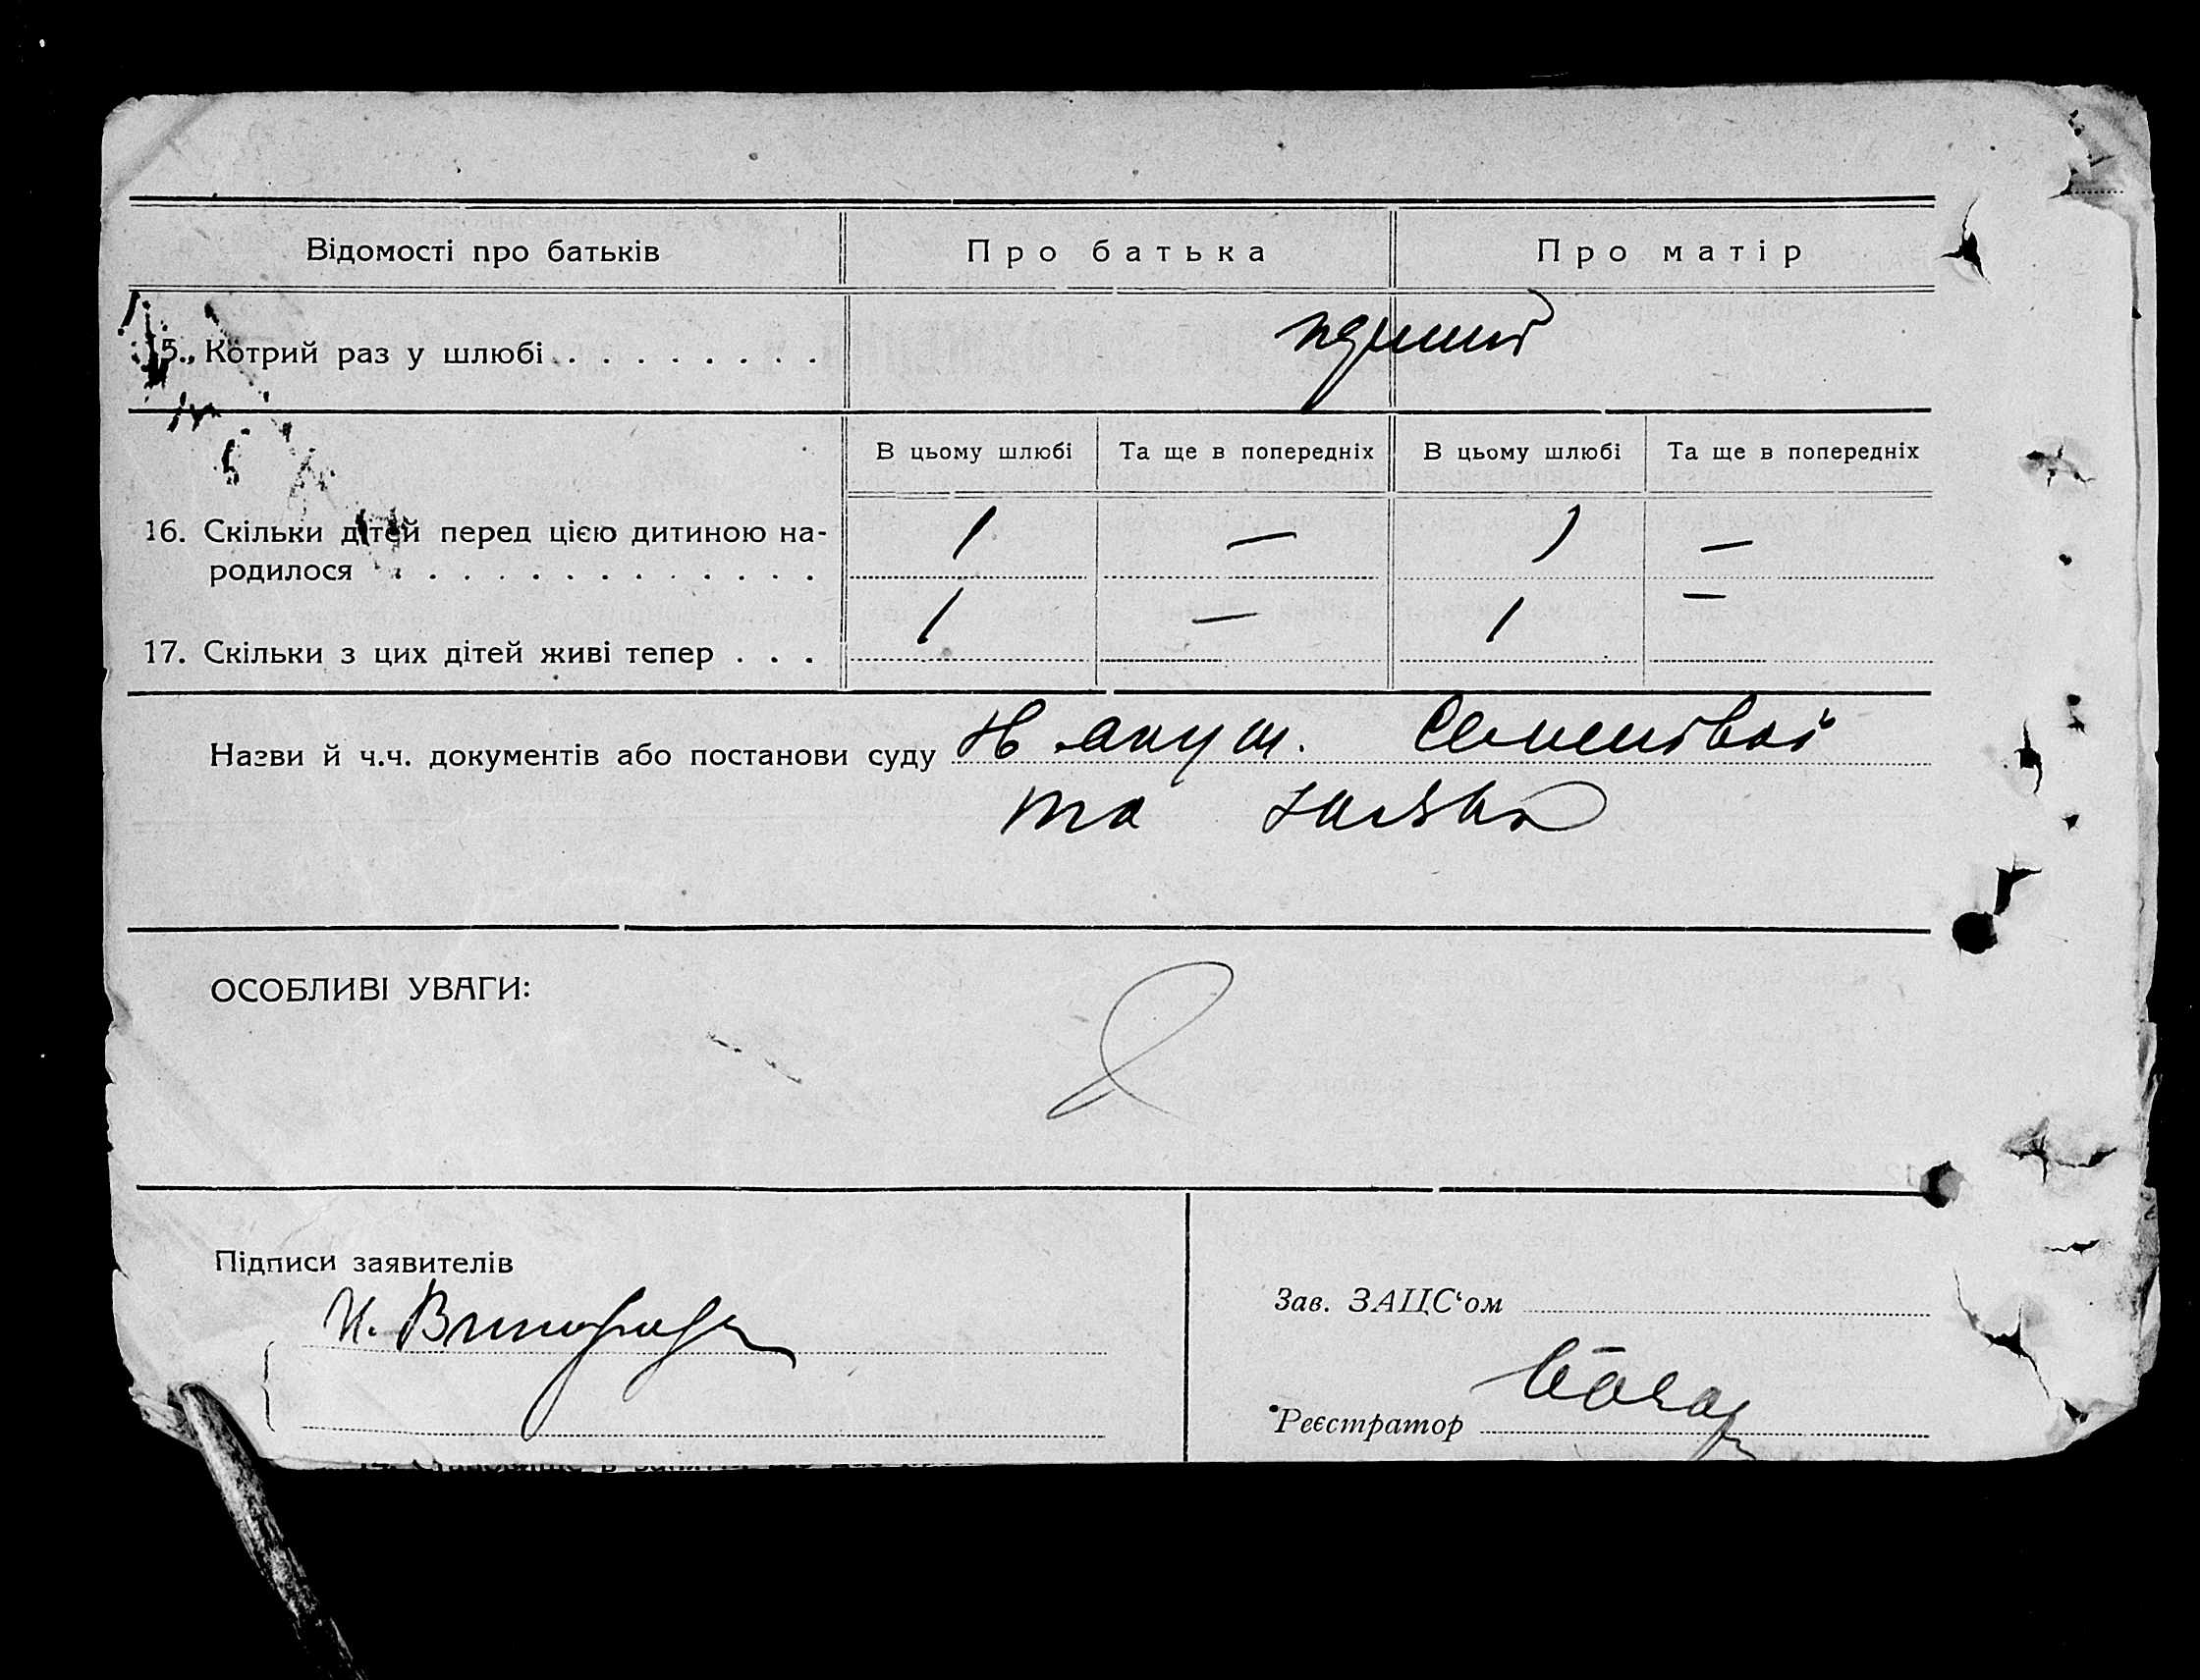 Відомості про батьків Про батька Про матір
15. Котрий раз у шлюбі . . . . . . . .
В цьому шлюбі Та ще в попередніх В цьому шлюбі Та ще в попередніх
16. Скільки дітей перед цією дитиною на- 1 — 1 —
родилося . . . . . . . . . . . . .
17. Скільки з цих дітей живі тепер . . . 1 — 1 —
Назви й ч.ч. документів або постанови суду акуш.
та
ОСОБЛИВІ УВАГИ:
Підписи заявителів
Зав. ЗАЦС‘ом
Реєстратор